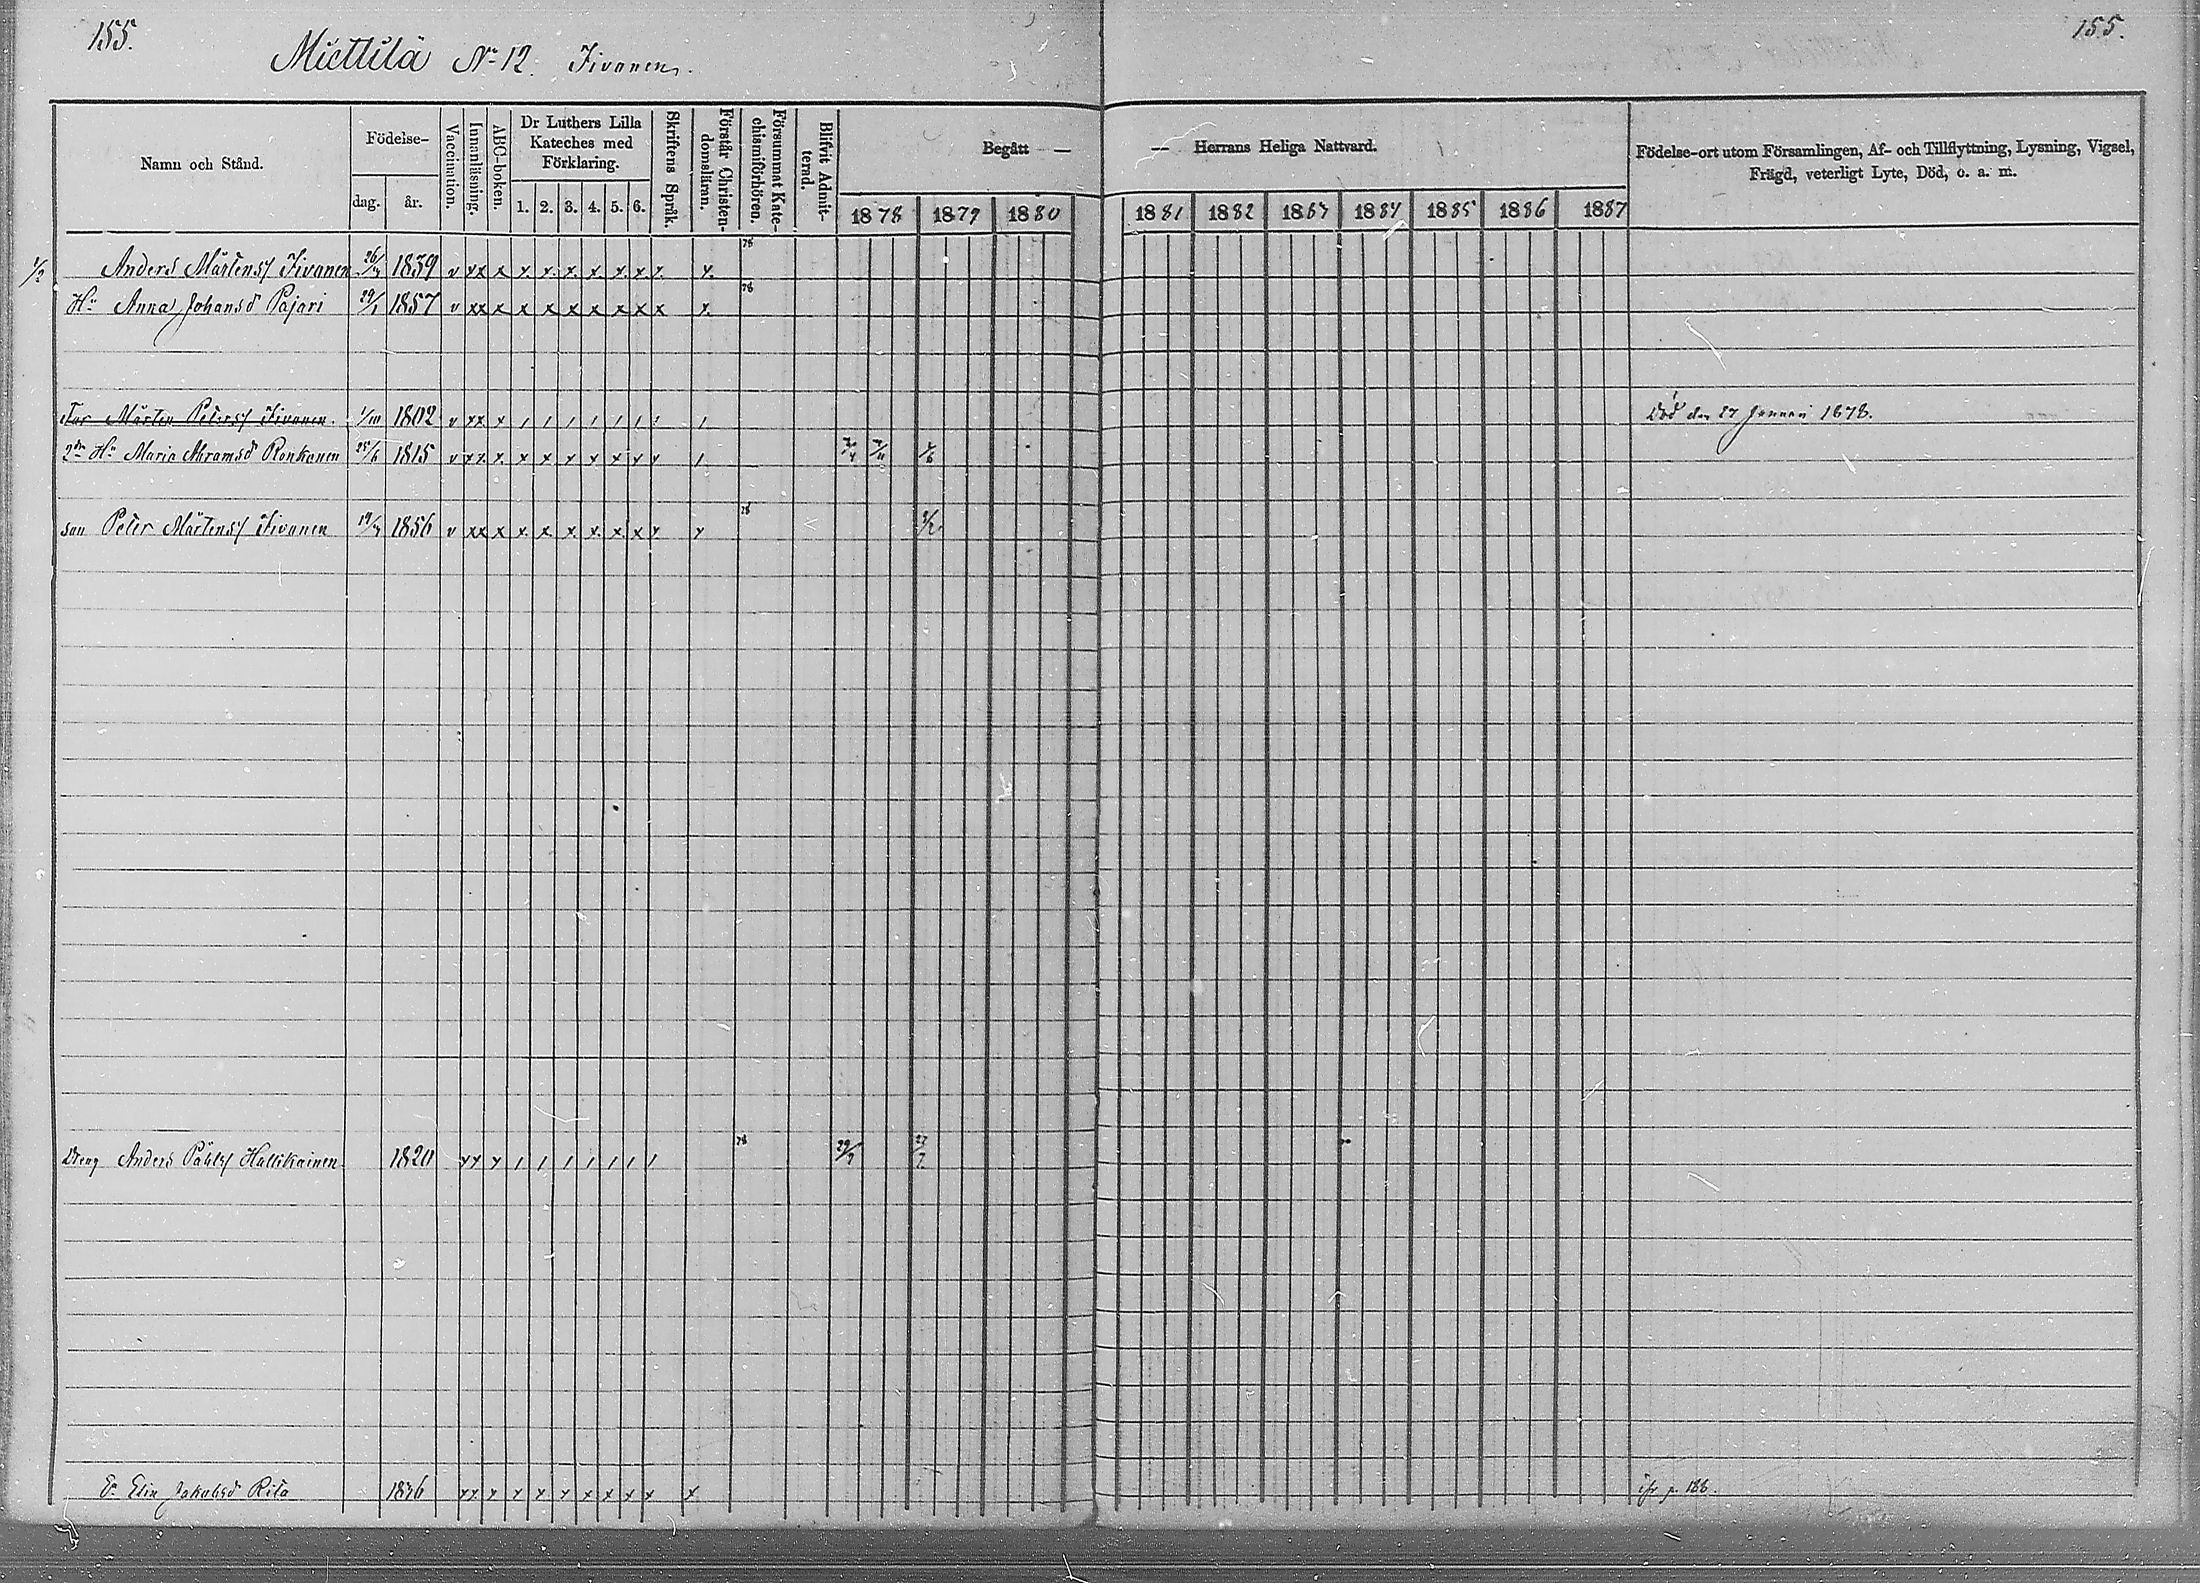 155.
155.
Miettilä No 12. Iivonen.
Namn och Stånd.
Födelse-
dag.
år.
Vaccination.
Innanläsning.
ABC-boken.
Dr Luthers Lilla
Kateches med
Förklaring.
1. 2. 3. 4. 5. 6.
Skriftens Språk.
Förstår Christen-
domsläran.
Försummat Kate-
chismiförhören.
Blifvit Admit-
terad.
Begått —
1878 1879 1880
— Herrans Heliga Nattvard.
1881 1882 1883 1884 1885 1886 1887
Födelse-ort utom Församlingen, Af- och Tillflyttning, Lysning, Vigsel,
Frägd, veterligt Lyte, Död, o. a. m.
1/2 Anders Mårtens Iivonen 1839 v xx x x x x x x x x x 78
Hu Anna Johansd Pajari 29/1 1857 v xx x x x x x x x x x 78
Far Mårten Peters Iivonen 1/10 1802 v xx x / / / / / / / / Död den 27 Januari 1878.
2dra Hu Maria Abramsd Ronkanen 25/6 1815 v xx x x x x x x x x /
son Peter Mårtens Iivonen 1856 v xx x x x x x x x x x 78
Dreng Anders Påhls Hallikainen 1820 xx x / / / / / / / 78 29/9 27/7
E. Elin Jakobsd Rita 1836 xx x x x x x x x x x p. 188.